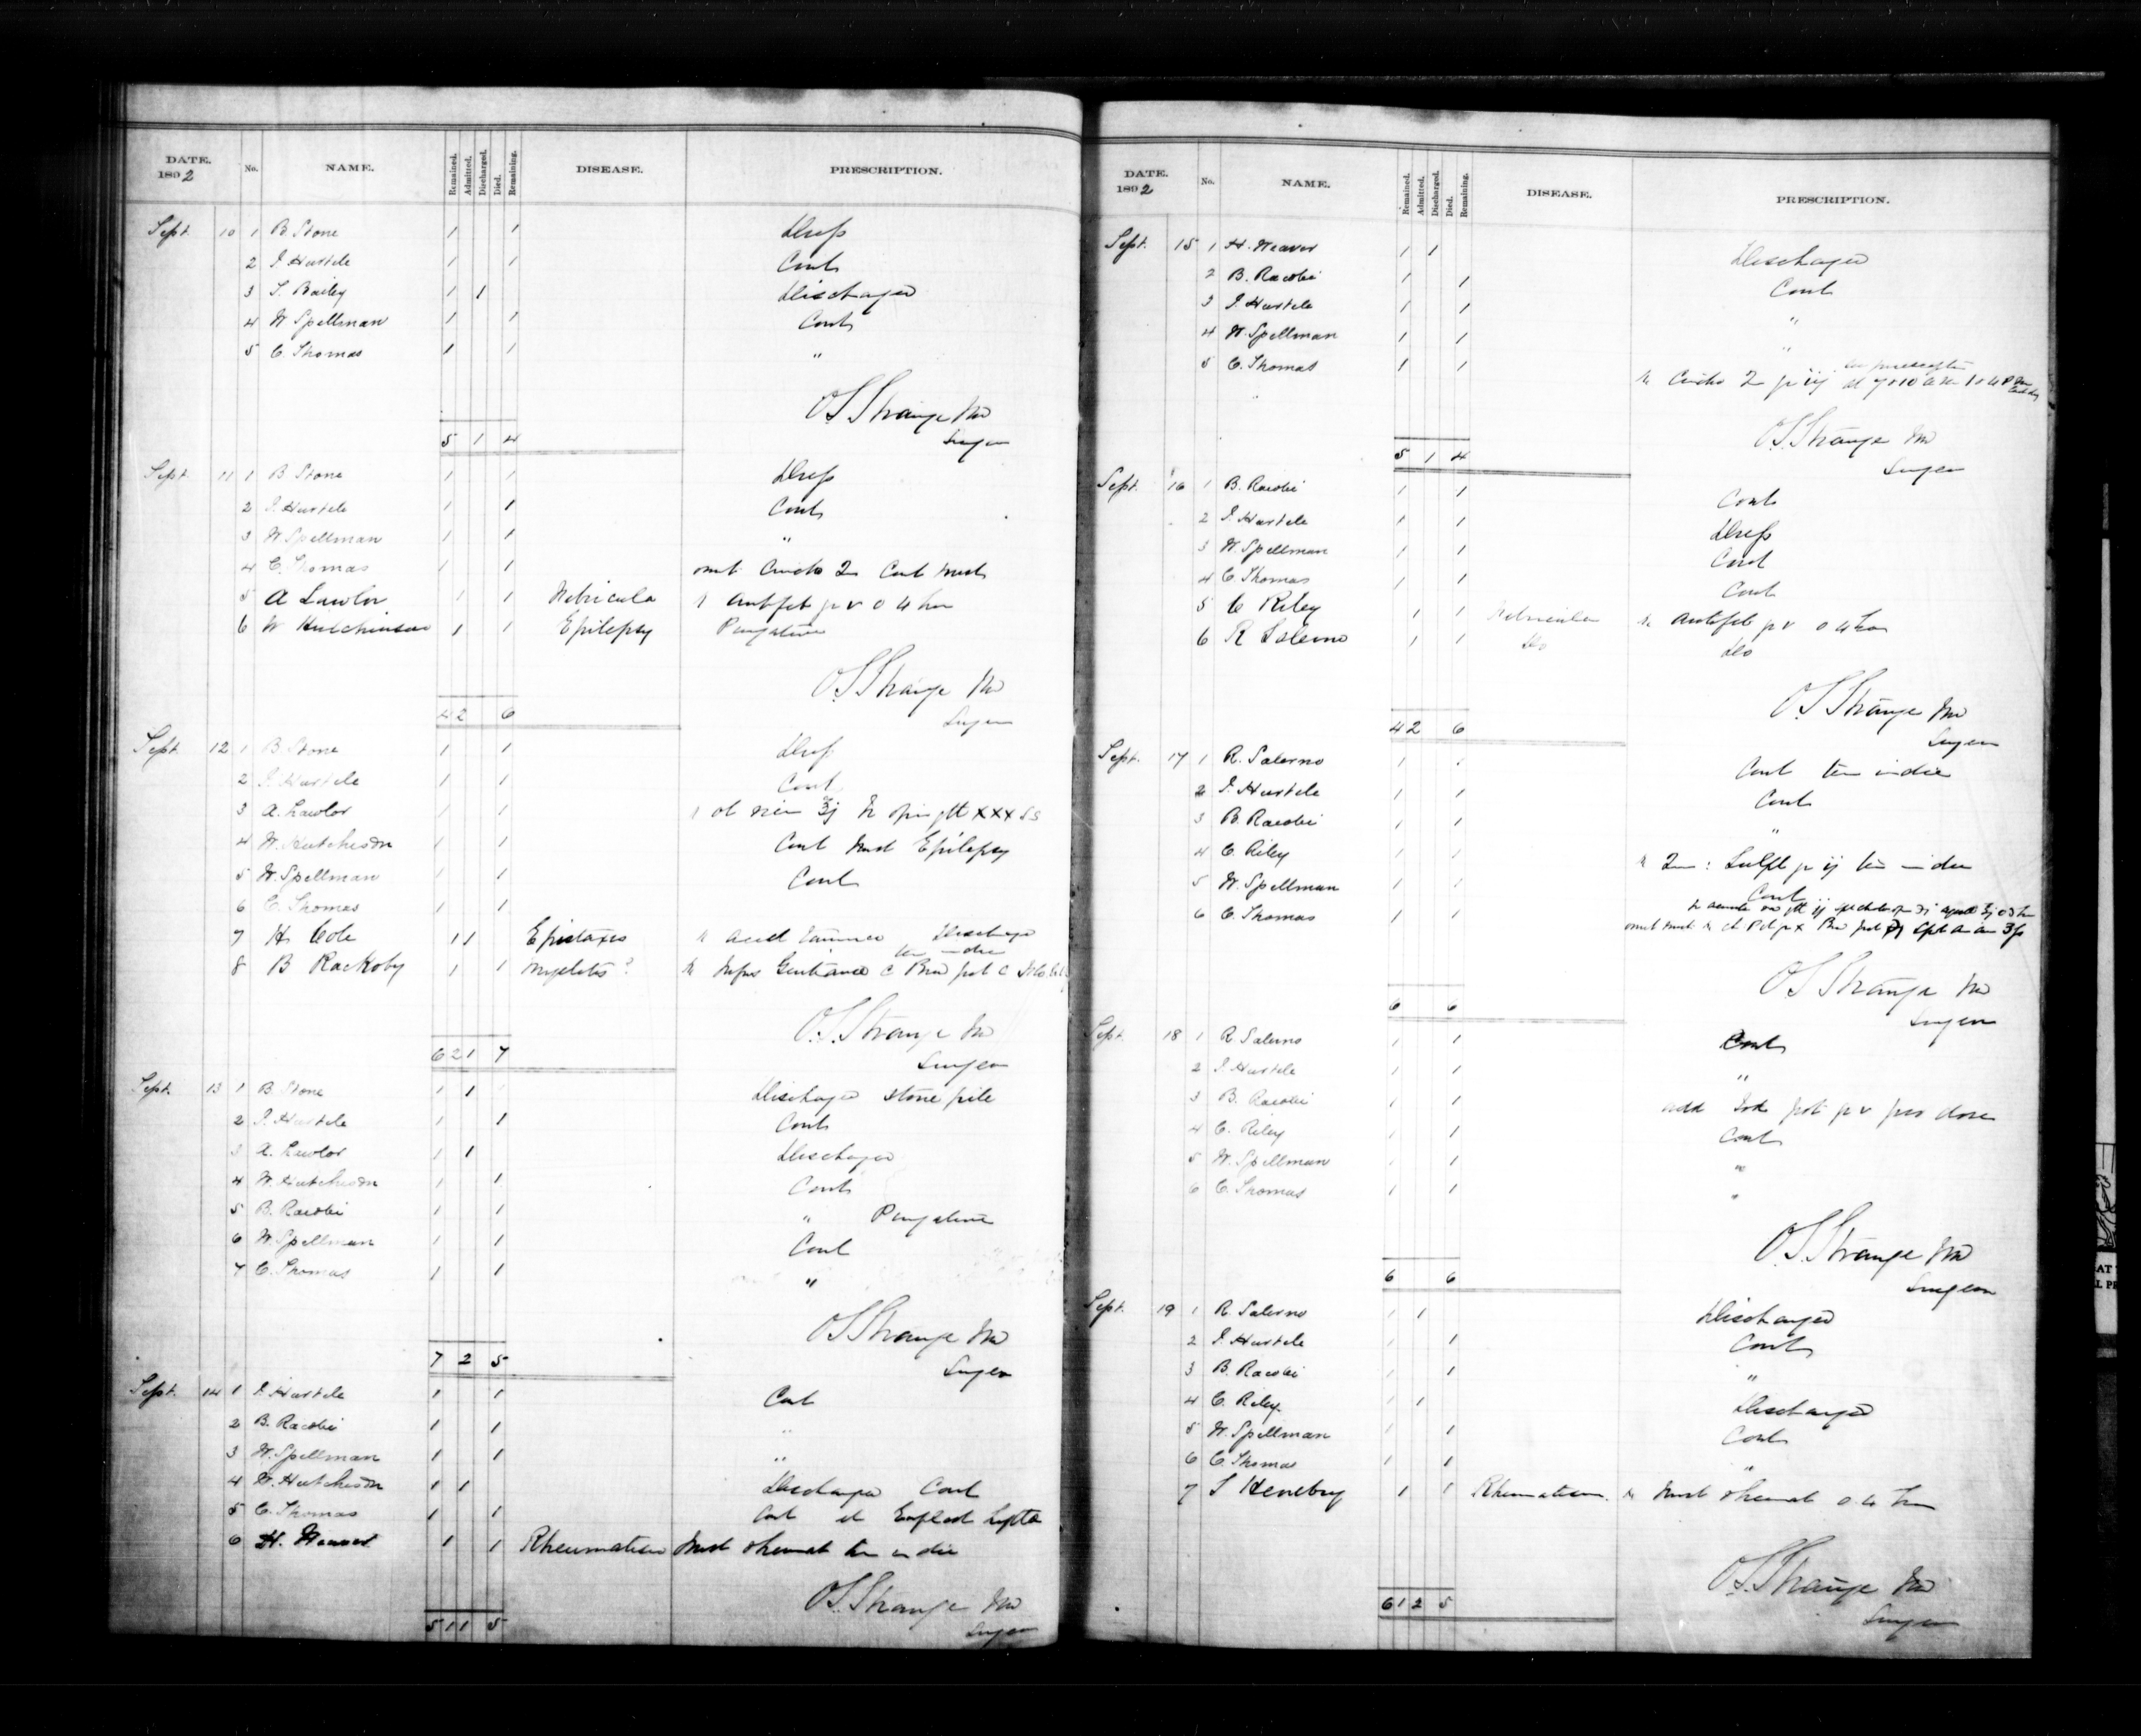 DATE. No. NAME. Remained. Admitted. Discharged. Died. Remaining. DISEASE. PRESCRIPTION.
1892
Sept. 10 1 B. Stone 1 1 Dress
2 J. Hurtele 1 1 Cont
3 S. Bailey 1 1 Discharged
4 W Spellman 1 1 Cont
5 C. Thomas 1 1 "
O.S. Strange MD
5 1 4 Surgeon
Sept. 11 1 B Stone 1 1 Dress
2 J. Hurtele 1 1 Cont
3 W Spellman 1 1 "
4 C. Thomas 1 1 omit Cincho Cont mist
5 A Lawlor 1 1 Antifeb gr v 4 hor
6 W Hutchinson 1 1 Epilepsy Purgative
O.S. Strange MD
4 2 6 Surgeon
Sept. 12 1 B Stone 1 1 Dress
2 J. Hurtele 1 1 Cont
3 A. Lawlor 1 1 ol ricin ℥j opii gtt xxx
4 W. Hutcheson 1 1 Cont Mist Epilepsy
5 W. Spellman 1 1 Cont
6 C. Thomas 1 1
7 H. Cole 1 1 Epistaxis acid Tannic Discharged
ter in die
8 B Rackoby 1 1 myelitis? Infus Gentianae c Brom pot c
O.S. Strange MD
6 2 1 7 Surgeon
Sept. 13 1 B. Stone 1 1 Discharged stone pile
2 J. Hurtele 1 1 Cont
3 A. Lawlor 1 1 Discharged
4 W. Hutcheson 1 1 Cont
5 B. Racobi 1 1 " Purgative
6 W. Spellman 1 1 Cont
7 C. Thomas 1 1 "
O.S. Strange MD
7 2 5 Surgeon
Sept. 14 1 J. Hurtele 1 1 Cont
2 B. Racobi 1 1 "
3 W. Spellman 1 1 "
4 W. Hutcheson 1 1 Discharged Cont
5 C. Thomas 1 1 Cont et
6 H. Weaver 1 1 Rheumatism Mist rheumat ter in die
O.S. Strange MD
5 1 1 5 Surgeon
DATE. No. NAME. Remained. Admitted. Discharged. Died. Remaining. DISEASE. PRESCRIPTION.
1892
Sept. 15 1 H. Weaver 1 1 Discharged
2 B. Racobi 1 1 Cont
3 J. Hurtele 1 1 "
4 W. Spellman 1 1 "
5 C. Thomas 1 1 Cincho gr iij at 7 & 10 a m 1 & 4 P M
O.S. Strange MD
5 1 4 Surgeon
Sept. 16 1 B. Racobi 1 1 Cont
2 J. Hurtele 1 1 Dress
3 W. Spellman 1 1 Cont
4 C Thomas 1 1 Cont
5 C Riley 1 1 Antifeb gr v 4 hor
6 R Salerno 1 1 Do Do
O.S. Strange MD
4 2 6 Surgeon
Sept. 17 1 R. Salerno 1 1 Cont ter in die
2 J. Hurtele 1 1 Cont
3 B. Racobi 1 1 "
4 C. Riley 1 1 Sulph gr ij ter in die
5 W. Spellman 1 1 Cont
6 C. Thomas 1 1
O.S. Strange MD
6 6 Surgeon
Sept. 18 1 R Salerno 1 1 Cont
2 J. Hurtele 1 1 "
3 B. Racobi 1 1 add Iod pot gr v per dose
4 C. Riley 1 1 Cont
5 W. Spellman 1 1 "
6 C. Thomas 1 1 "
O.S. Strange MD
6 6 Surgeon
Sept. 19 1 R. Salerno 1 1 Discharged
2 J. Hurtele 1 1 Cont
3 B. Racobi 1 1 "
4 C. Riley. 1 1 Discharged
5 W. Spellman 1 1 Cont
6 C. Thomas 1 1 "
7 S Henebry 1 1 Rheumatism. Mist rheumat 4 hor
O.S. Strange MD
6 1 2 5 Surgeon